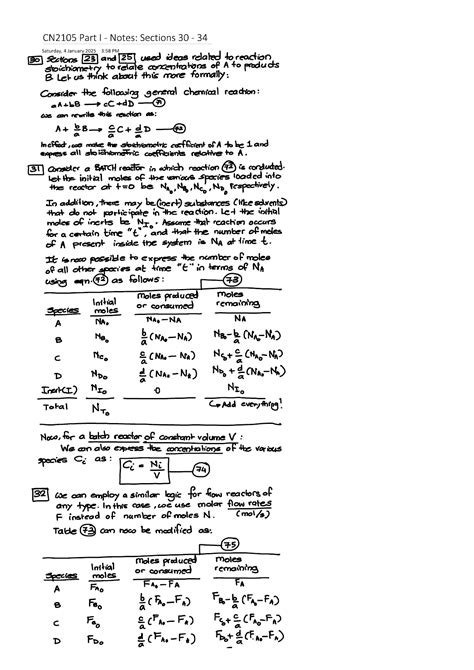 CN2105 Part I - Notes: Sections 30 - 34
Saturday, 4 January 2025 3:58 PM
30 Sections 23 and 25 used ideas related to reaction
stoichiometry to relate concentrations of A to products
B. Let us think about this more formally:
Consider the following general chemical reaction:
aA+bB → cC+dD — 71
we can rewrite this reaction as:
A + b/a B → c/a C + d/a D — 72
In effect, we make the stoichiometric coefficient of A to be 1 and
express all stoichiometric coefficients relative to A.
31 Consider a BATCH reactor in which reaction 72 is conducted.
Let the initial moles of the various species loaded into
the reactor at t=0 be NA₀, NB₀, NC₀, ND₀ respectively.
In addition, there may be (inert) substances (like solvents)
that do not participate in the reaction. Let the initial
moles of inerts be NI₀. Assume that reaction occurs
for a certain time "t", and that the number of moles
of A present inside the system is NA at time t.
It is now possible to express the number of moles
of all other species at time "t" in terms of NA
using eqn. 72 as follows: 73
Species Initial moles Moles produced or consumed Moles remaining
A NA₀ NA₀-NA NA
B NB₀ b/a (NA₀-NA) NB₀-b/a (NA₀-NA)
C NC₀ c/a (NA₀-NA) NC₀+c/a (NA₀-NA)
D ND₀ d/a (NA₀-NA) ND₀+d/a (NA₀-NA)
Inert(I) NI₀ 0 NI₀
Total NT₀ ↳Add everything!
Now, for a batch reactor of constant volume V:
We can also express the concentrations of the various
species Ci as: Ci = Ni/V — 74
32 We can employ a similar logic for flow reactors of
any type. In this case, we use molar flow rates
F instead of number of moles N. (mol/s)
Table 73 can now be modified as:
75
Species Initial moles Moles produced or consumed Moles remaining
A FA₀ FA₀-FA FA
B FB₀ b/a (FA₀-FA) FB₀-b/a (FA₀-FA)
C c/a (FA₀-FA) FC₀+c/a (FA₀-FA)
D FD₀ d/a (FA₀-FA) FD₀+d/a (FA₀-FA)